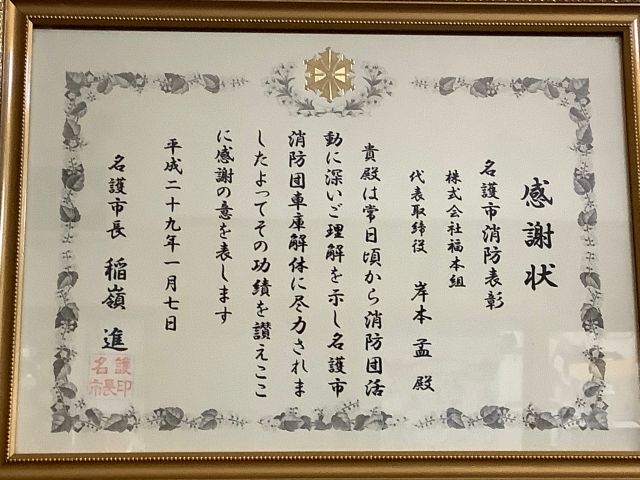 感謝状
名護市消防表彰
株式会社福本組
代表取締役 岸本孟殿
貴殿は常日頃から消防団活
動に深いご理解を示し名護市
消防団車庫解体に尽力されま
したよってその功績を讃えここ
に感謝の意を表します
平成二十九年一月七日
名護市長 稲嶺進
名護
市長印